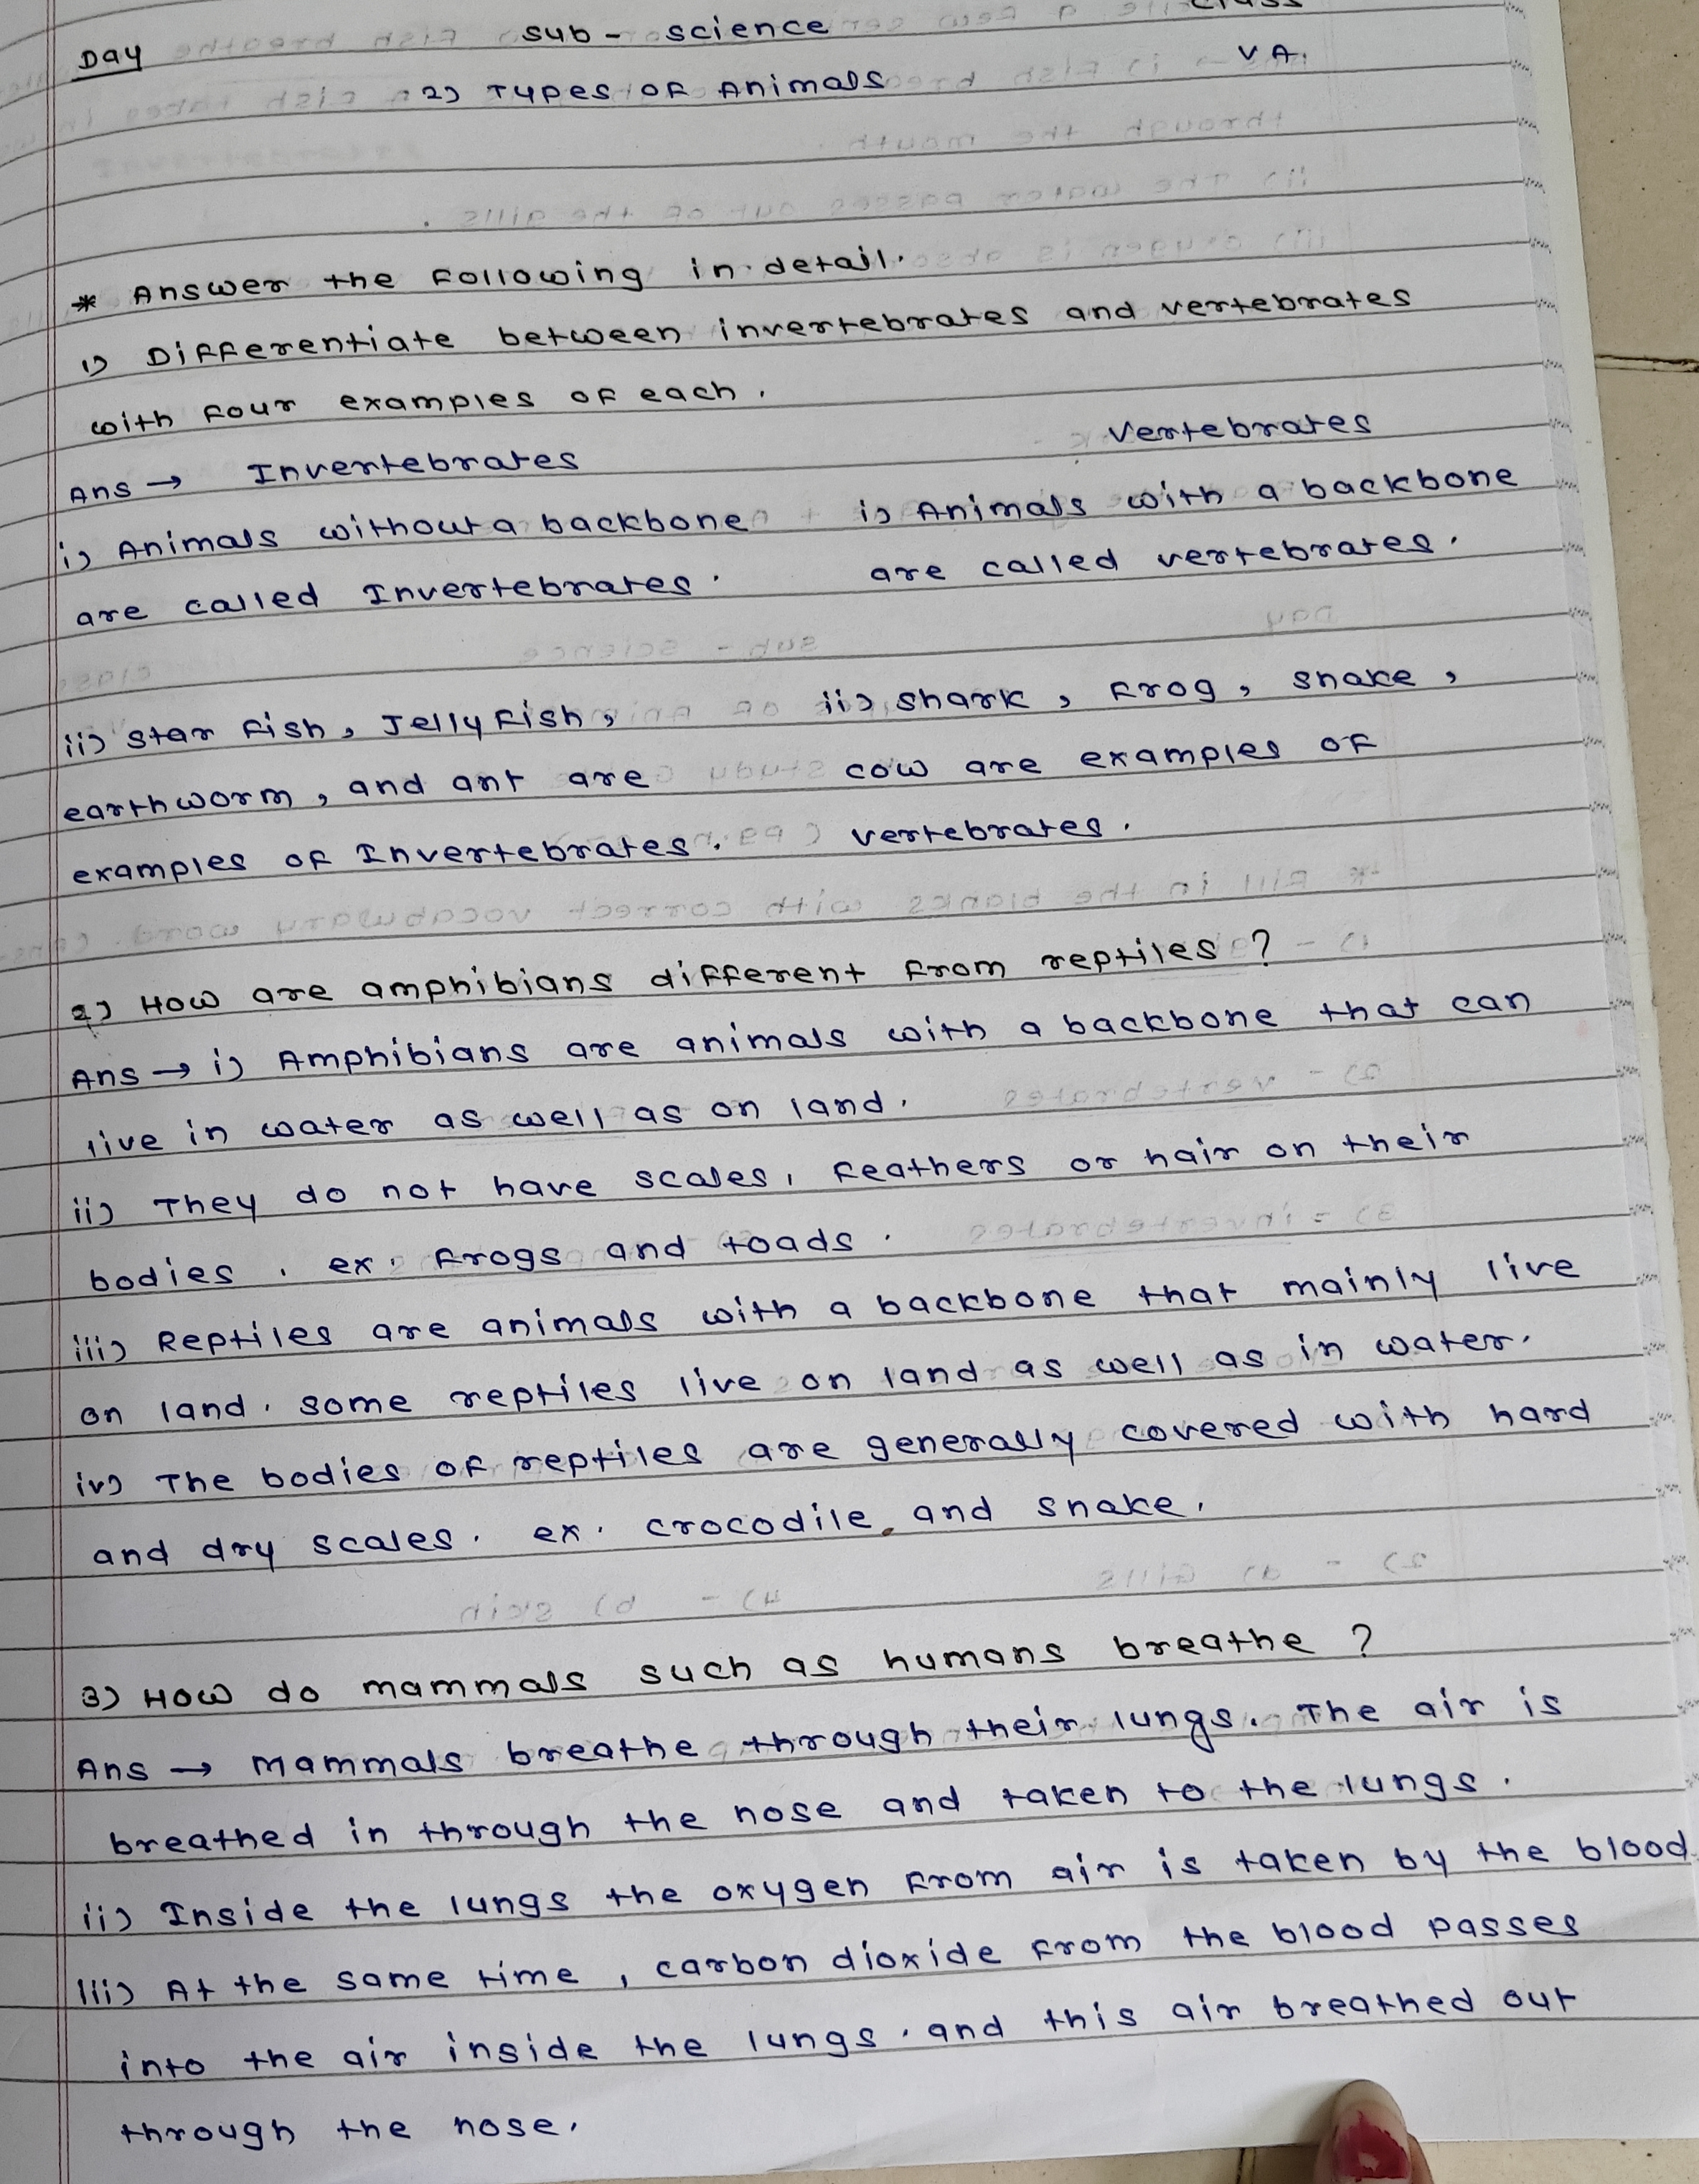 Day sub - science class
V A.
2) Types of Animals
* Answer the following in detail.
1) Differentiate between invertebrates and vertebrates
with four examples of each.
Ans → Invertebrates Vertebrates
i) Animals without a backbone i) Animals with a backbone
are called Invertebrates. are called vertebrates.
ii) Star fish, Jelly fish, ii) shark, frog, snake,
earthworm, and ant are cow are examples of
examples of Invertebrates. vertebrates.
2) How are amphibians different from reptiles?
Ans → i) Amphibians are animals with a backbone that can
live in water as well as on land.
ii) They do not have scales, feathers or hair on their
bodies. ex. frogs and toads.
iii) Reptiles are animals with a backbone that mainly live
on land. some reptiles live on land as well as in water.
iv) The bodies of reptiles are generally covered with hard
and dry scales. ex. crocodile, and snake.
3) How do mammals such as humans breathe?
Ans → Mammals breathe through their lungs. The air is
breathed in through the nose and taken to the lungs.
ii) Inside the lungs the oxygen from air is taken by the blood
iii) At the same time, carbon dioxide from the blood passes
into the air inside the lungs. and this air breathed out
through the nose.